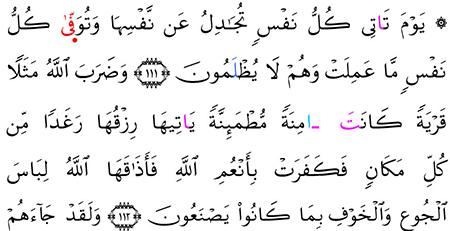 ۞ يَوْمَ تَاتِى كُلُّ نَفْسٍ تُجَـٰدِلُ عَن نَّفْسِهَا وَتُوَفّۭىٰ كُلُّ
نَفْسٍ مَّا عَمِلَتْ وَهُمْ لَا يُظْلَمُونَ ۝١١١ وَضَرَبَ ٱللَّهُ مَثَلًا
قَرْيَةً كَانَتَ ـامِنَةً مُّطْمَئِنَّةً يَاتِيهَا رِزْقُهَا رَغَدًا مِّن
كُلِّ مَكَانٍ فَكَفَرَتْ بِأَنْعُمِ ٱللَّهِ فَأَذَاقَهَا ٱللَّهُ لِبَاسَ
ٱلْجُوعِ وَٱلْخَوْفِ بِمَا كَانُوا۟ يَصْنَعُونَ ۝١١٢ وَلَقَدْ جَآءَهُمْ